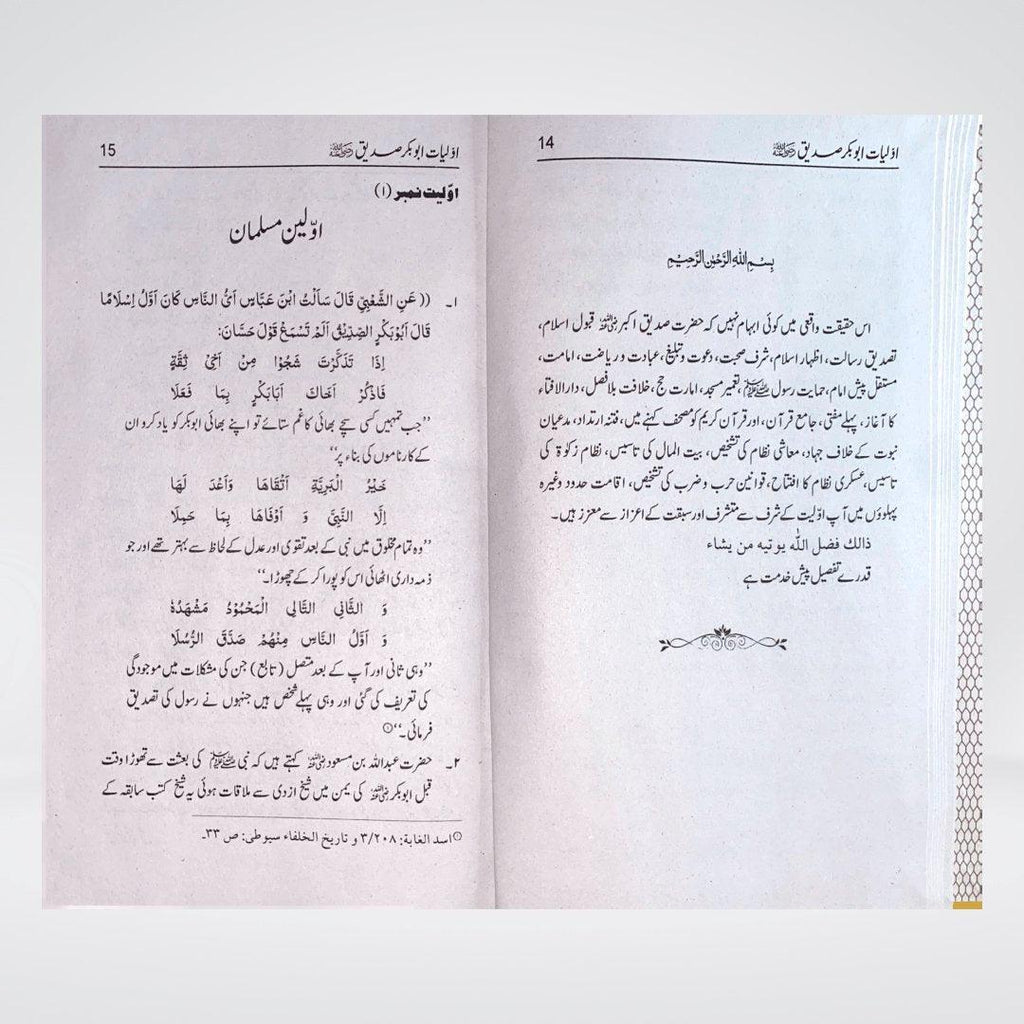 14
اوّلیات ابوبکر صدیق رضی اللہ عنہ
بِسْمِ اللهِ الرَّحْمٰنِ الرَّحِيْمِ
اس حقیقت واقعی میں کوئی ابہام نہیں کہ حضرت صدیق اکبر رضی اللہ عنہ قبول اسلام،
تصدیق رسالت، اظہار اسلام، شرف صحبت، دعوت و تبلیغ، عبادت و ریاضت، امامت،
مستقل پیش امام، حمایت رسول ﷺ، تعمیر مسجد، امارت حج، خلافت بلافصل، دارالافتاء
کا آغاز، پہلے مفتی، جامع قرآن، اور قرآن کریم کو مصحف کہنے میں، فتنہ ارتداد، مدعیان
نبوت کے خلاف جہاد، معاشی نظام کی تشخیص، بیت المال کی تاسیس، نظام زکوٰۃ کی
تاسیس، عسکری نظام کا افتتاح، قوانین حرب و ضرب کی تشخیص، اقامت حدود وغیرہ
پہلوؤں میں آپ اوّلیت کے شرف سے متشرف اور سبقت کے اعزاز سے معزز ہیں۔
ذالك فضل الله يوتيه من يشاء
قدرے تفصیل پیش خدمت ہے
15
اوّلیات ابوبکر صدیق رضی اللہ عنہ
اوّلیت نمبر (۱)
اوّلین مسلمان
۱۔ (( عَنِ الشَّعْبِيِّ قَالَ سَأَلْتُ ابْنَ عَبَّاسٍ أَيُّ النَّاسِ كَانَ أَوَّلُ إِسْلَامًا
قَالَ أَبُوْبَكْرٍ الصِّدِّيْقُ أَلَمْ تَسْمَعْ قَوْلَ حَسَّانَ:
إِذَا تَذَكَّرْتَ شَجْوًا مِنْ أَخِيْ ثِقَةٍ
فَاذْكُرْ أَخَاكَ أَبَابَكْرٍ بِمَا فَعَلَا
’’جب تمہیں کسی سچے بھائی کا غم ستائے تو اپنے بھائی ابوبکر کو یاد کرو ان
کے کارناموں کی بناء پر‘‘
خَيْرُ الْبَرِيَّةِ أَتْقَاهَا وَأَعْدَ لَهَا
إِلَّا النَّبِيَّ وَ أَوْفَاهَا بِمَا حَمِلَا
’’وہ تمام مخلوق میں نبی کے بعد تقوی اور عدل کے لحاظ سے بہتر تھے اور جو
ذمہ داری اٹھائی اس کو پورا کر کے چھوڑا۔‘‘
وَ الثَّانِي التَّالِي الْمَحْمُوْدُ مَشْهَدُهٗ
وَ أَوَّلُ النَّاسِ مِنْهُمْ صَدَّقَ الرُّسُلَا
’’وہی ثانی اور آپ کے بعد متصل (تابع) جن کی مشکلات میں موجودگی
کی تعریف کی گئی اور وہی پہلے شخص ہیں جنہوں نے رسول کی تصدیق
فرمائی۔‘‘①
۲۔ حضرت عبداللہ بن مسعود رضی اللہ عنہ کہتے ہیں کہ نبی ﷺ کی بعثت سے تھوڑا وقت
قبل ابوبکر رضی اللہ عنہ کی یمن میں شیخ ازدی سے ملاقات ہوئی یہ شیخ کتب سابقہ کے
① اسد الغابة: ۳/۲۰۸ و تاریخ الخلفاء سیوطی: ص ۳۳۔